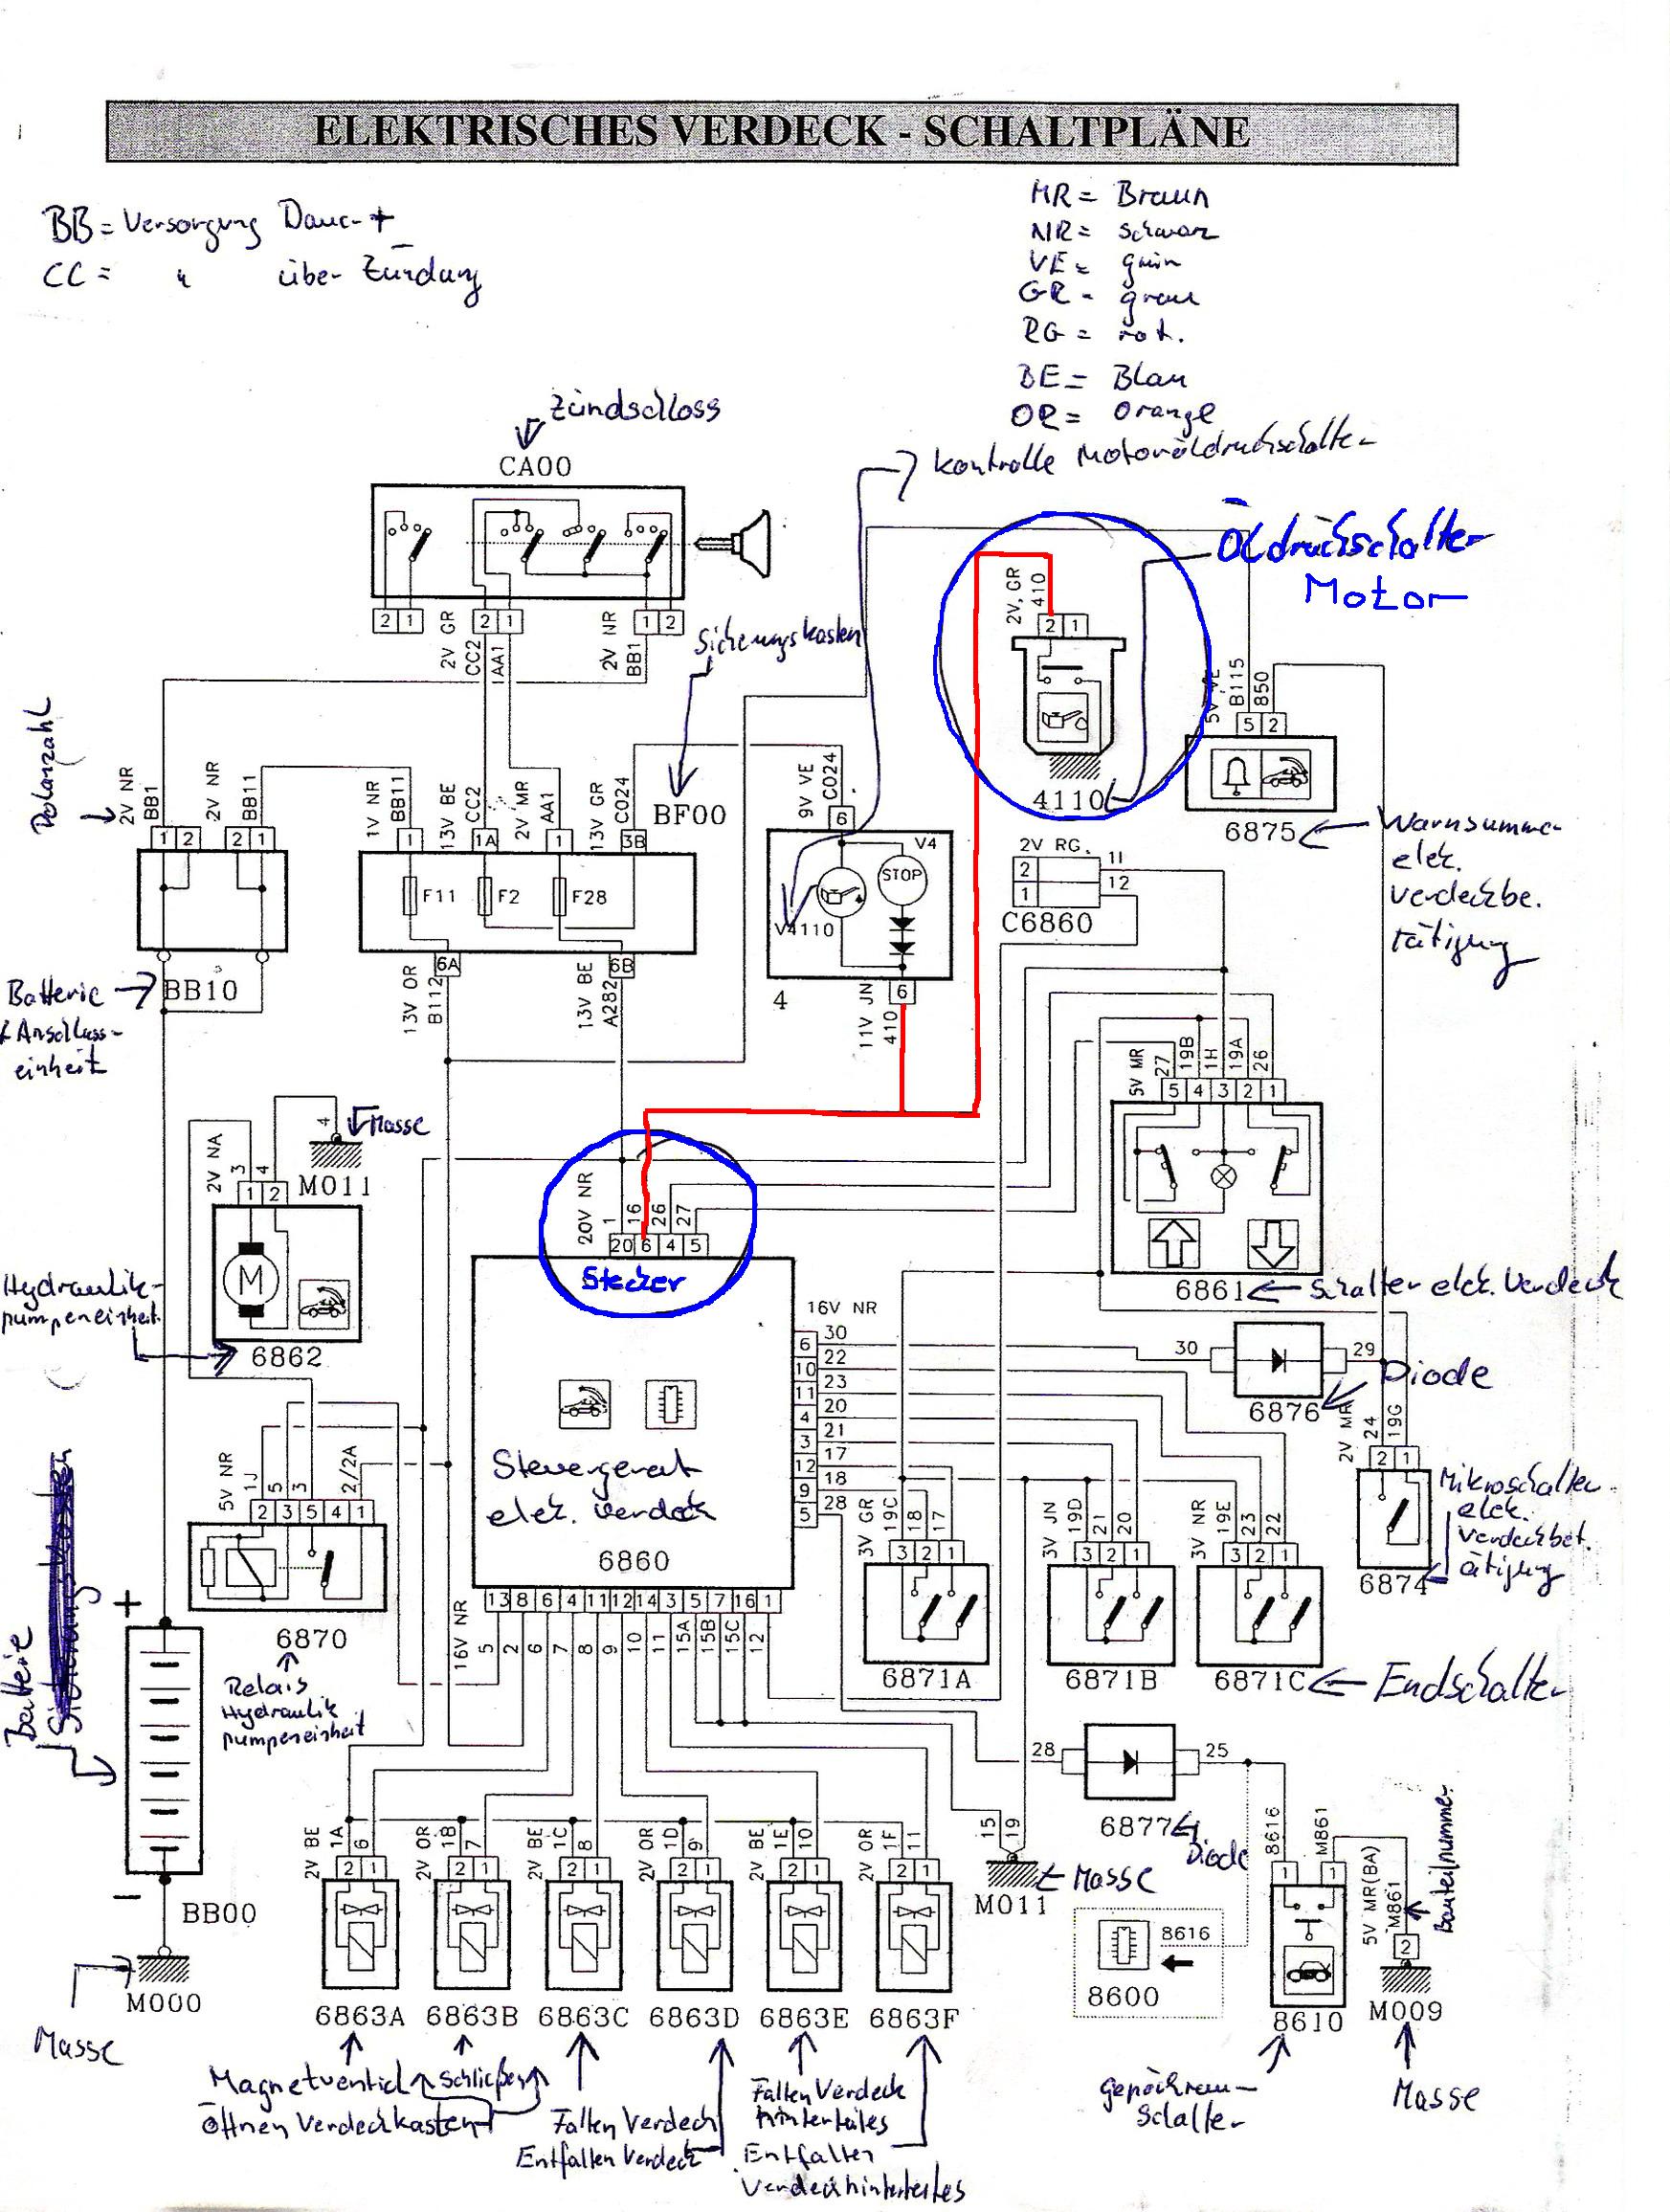 ELEKTRISCHES VERDECK - SCHALTPLÄNE
BB = Versorgung Dauer +
CC = " über Zündung
MR = Braun
NR = schwarz
VE = grün
GR = grau
RG = rot.
BE = Blau
OR = Orange
Kontrolle Motoröldruckschalter
Zündschloss
CA00
Öldruckschalter
Motor
2V, GR
410
2 1
4110
2 1
2V GR
CC2
AA1
2 1
2V NR
BB1
1 2
Sicherungskasten
BF00
Polanzahl
2V NR
BB1
2V NR
BB11
1 2
2 1
BB10
Batterie
Anschluss-
einheit
1V NR
BB11
13V BE
CC2
2V MR
AA1
13V GR
C024
1
1A
1
3B
F11
F2
F28
6A
6B
13V OR
B112
13V BE
A282
9V VE
C024
6
V4
STOP
V4110
6
4
11V JN
410
5V VE
B115
850
5 2
6875
Warnsummer
elek.
Verdeckbe.
tätigung
2V RG.
2
1
11
12
C6860
5V MR
27
19B
1H
19A
26
5 4 3 2 1
6861
Schalter elek. Verdeck
2V NA
3
4
1 2
4
Masse
M011
M
6862
Hydraulik-
pumpeneinheit
20V NR
1
16
26
27
20 6 4 5
Stecker
Steuergerät
elek. Verdeck
6860
16V NR
6
10
11
4
3
12
9
5
30
22
23
20
21
17
18
28
30
29
6876
Diode
2V MR
24
19G
2 1
6874
Mikroschalter
elek.
Verdeckbet.
ätigung
5V NR
1J
5
3
2/2A
2 3 5 4 1
6870
Relais
Hydraulik
pumpeneinheit
3V GR
19C
18
17
3 2 1
6871A
3V JN
19D
21
20
3 2 1
6871B
3V NR
19E
23
22
3 2 1
6871C
Endschalter
13 8 6 4 11 12 14 3 5 7 16 1
16V NR
5
2
6
7
8
9
10
11
15A
15B
15C
12
Batterie
+
-
BB00
M000
Masse
28
25
6877
Diode
15
19
M011
Masse
2V BE
1A
6
2 1
6863A
2V OR
1B
7
2 1
6863B
2V BE
1C
8
2 1
6863C
2V OR
1D
9
2 1
6863D
2V BE
1E
10
2 1
6863E
2V OR
1F
11
2 1
6863F
8616
8600
8616
M861
1
1
8610
5V MR(BA)
M861
2
M009
Bauteilnummer
Magnetventil
schließen
öffnen Verdeckkasten
Falten Verdeck
Entfalten Verdeck
Falten Verdeck
hinterteiles
Entfalten
Verdeckhinterteiles
Gepäckraum-
schalter
Masse